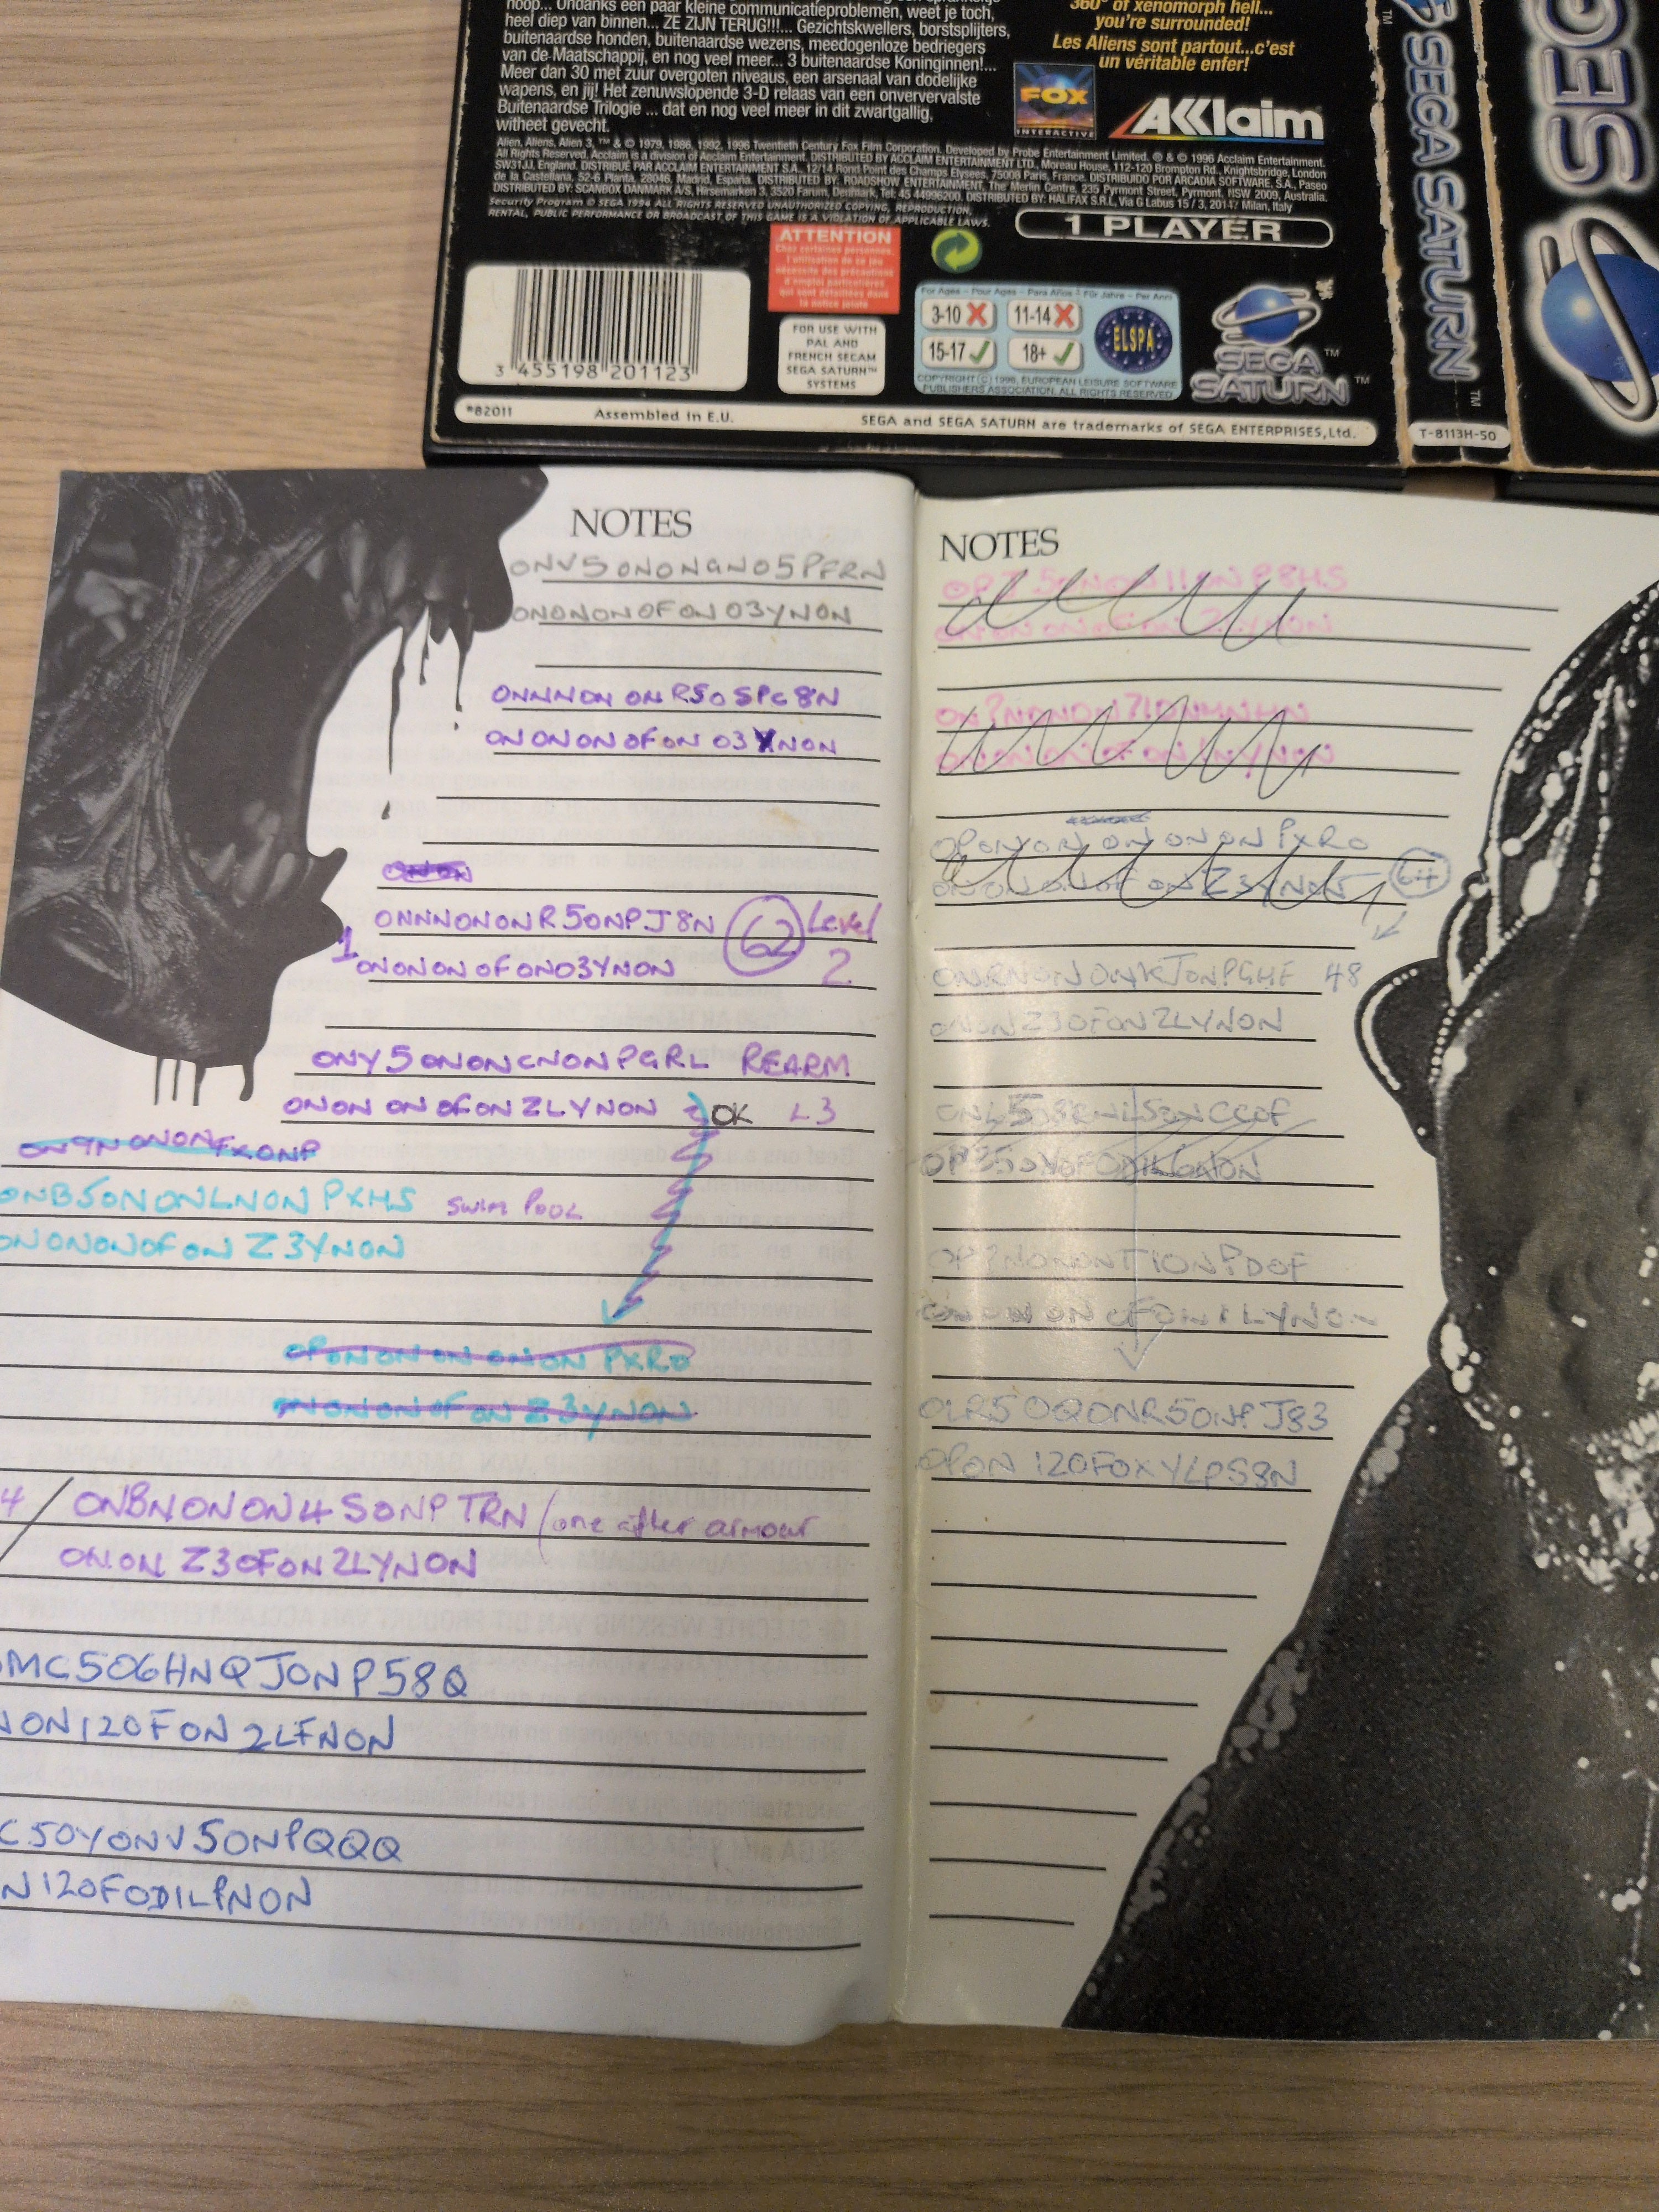 hoop... Ondanks een paar kleine communicatieproblemen, weet je toch,
heel diep van binnen... ZE ZIJN TERUG!!!... Gezichtskwellers, borstsplijters,
buitenaardse honden, buitenaardse wezens, meedogenloze bedriegers
van de Maatschappij, en nog veel meer... 3 buitenaardse Koninginnen!...
Meer dan 30 met zuur overgoten niveaus, een arsenaal van dodelijke
wapens, en jij! Het zenuwslopende 3-D relaas van een onververvalste
Buitenaardse Trilogie ... dat en nog veel meer in dit zwartgallig,
witheet gevecht.
360° of xenomorph hell...
you're surrounded!
Les Aliens sont partout...c'est
un véritable enfer!
FOX
INTERACTIVE
AKklaim
Alien, Aliens, Alien 3, ™ & © 1979, 1986, 1992, 1996 Twentieth Century Fox Film Corporation. Developed by Probe Entertainment Limited. ® & © 1996 Acclaim Entertainment.
All Rights Reserved. Acclaim is a division of Acclaim Entertainment. DISTRIBUTED BY ACCLAIM ENTERTAINMENT LTD. Moreau House, 112-120 Brompton Rd., Knightsbridge, London
SW31JJ, England. DISTRIBUÉ PAR ACCLAIM ENTERTAINMENT S.A., 12/14 Rond Point des Champs Elysees, 75008 Paris, France. DISTRIBUIDO POR ARCADIA SOFTWARE, S.A., Paseo
de la Castellana, 52-6 Planta, 28046, Madrid, España. DISTRIBUTED BY: ROADSHOW ENTERTAINMENT, The Merlin Centre, 235 Pyrmont Street, Pyrmont, NSW 2009, Australia.
DISTRIBUTED BY: SCANBOX DANMARK A/S, Hirsemarken 3, 3520 Farum, Denmark, Tel: 45 44996200. DISTRIBUTED BY: HALIFAX S.R.L, Via G Labus 15 / 3, 20147 Milan, Italy
Security Program © SEGA 1994 ALL RIGHTS RESERVED UNAUTHORIZED COPYING, REPRODUCTION,
RENTAL, PUBLIC PERFORMANCE OR BROADCAST OF THIS GAME IS A VIOLATION OF APPLICABLE LAWS.
1 PLAYER
ATTENTION
Chez certaines personnes,
l'utilisation de ce jeu
nécessite des précautions
d'emploi particulières
qui sont détaillées dans
la notice jointe
FOR USE WITH
PAL AND
FRENCH SECAM
SEGA SATURN™
SYSTEMS
For Ages - Pour Ages - Para Años - Für Jahre - Per Anni
3-10 11-14
15-17 18+
ELSPA
COPYRIGHT (C) 1996, EUROPEAN LEISURE SOFTWARE
PUBLISHERS ASSOCIATION. ALL RIGHTS RESERVED
SEGA
SATURN™
3 455198 201123
*82011 Assembled in E.U. SEGA and SEGA SATURN are trademarks of SEGA ENTERPRISES, Ltd.
SEGA SATURN™
T-8113H-50
NOTES
ONV5ONONGNO5PFRN
ONONONOFONO3YNON
ONNNONONR5O5PG8N
ONONONOFONO3YNON
ONON
ONNNONONR5ONPJ8N 62 Level
1 ONONONOFONO3YNON 2
ONY5ONONCNONPGRL REARM
ONONONOFONZLYNON OK L3
ON9NONONFXONP
ONB5ONONLNONPXHS SWIM POOL
ONONONOFONZ3YNON
OPONONONONONPXRO
ONONONOFONZ3YNON
4 / ONBNONON4SONPTRN / one after armour
ONONZ3OFON2LYNON
MC5O6HNQJONP58Q
ON12OFON2LFNON
C5OYONV5ONPQQQ
N12OFODILPNON
NOTES
OPJ5ONON11ONP8HS
ONONONOFONZLYNON
ONONONOFON1NYNON
OPONYONONONONPXRO
ONONONOFONZ3YNON 64
ONRNONONKJONPGHF 48
ONONZ3OFONZLYNON
OP?NONONTIONPDOF
ONONONOFON1LYNON
OLR5OQONR5ONPJ83
OPON12OFOXYLPS8N